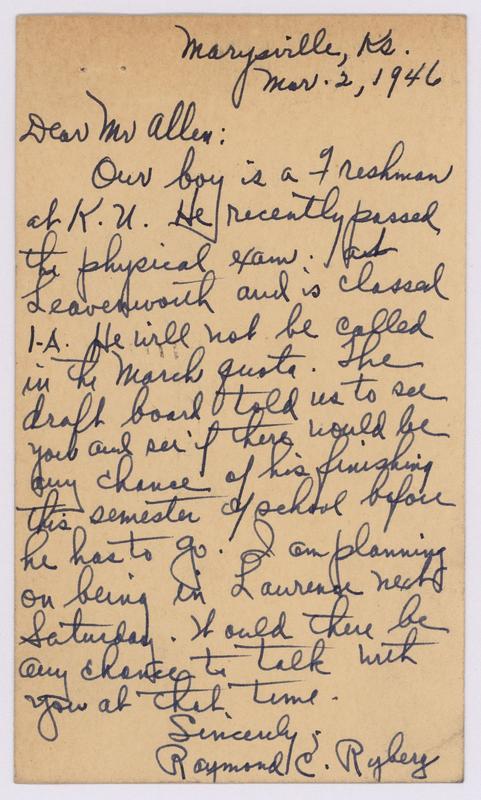 Marysville, Ks.
Mar. 2, 1946
Dear Mr Allen:
Our boy is a Freshman
at K. U. He recently passed
the physical exam. at
Leavenworth and is classed
1-A. He will not be called
in the March quota. The
draft board told us to see
you and see if there would be
any chance of his finishing
this semester of school before
he has to go. I am planning
on being in Lawrence next
Saturday. Would there be
any chance to talk with
you at that time.
Sincerely;
Raymond C. Ryberg